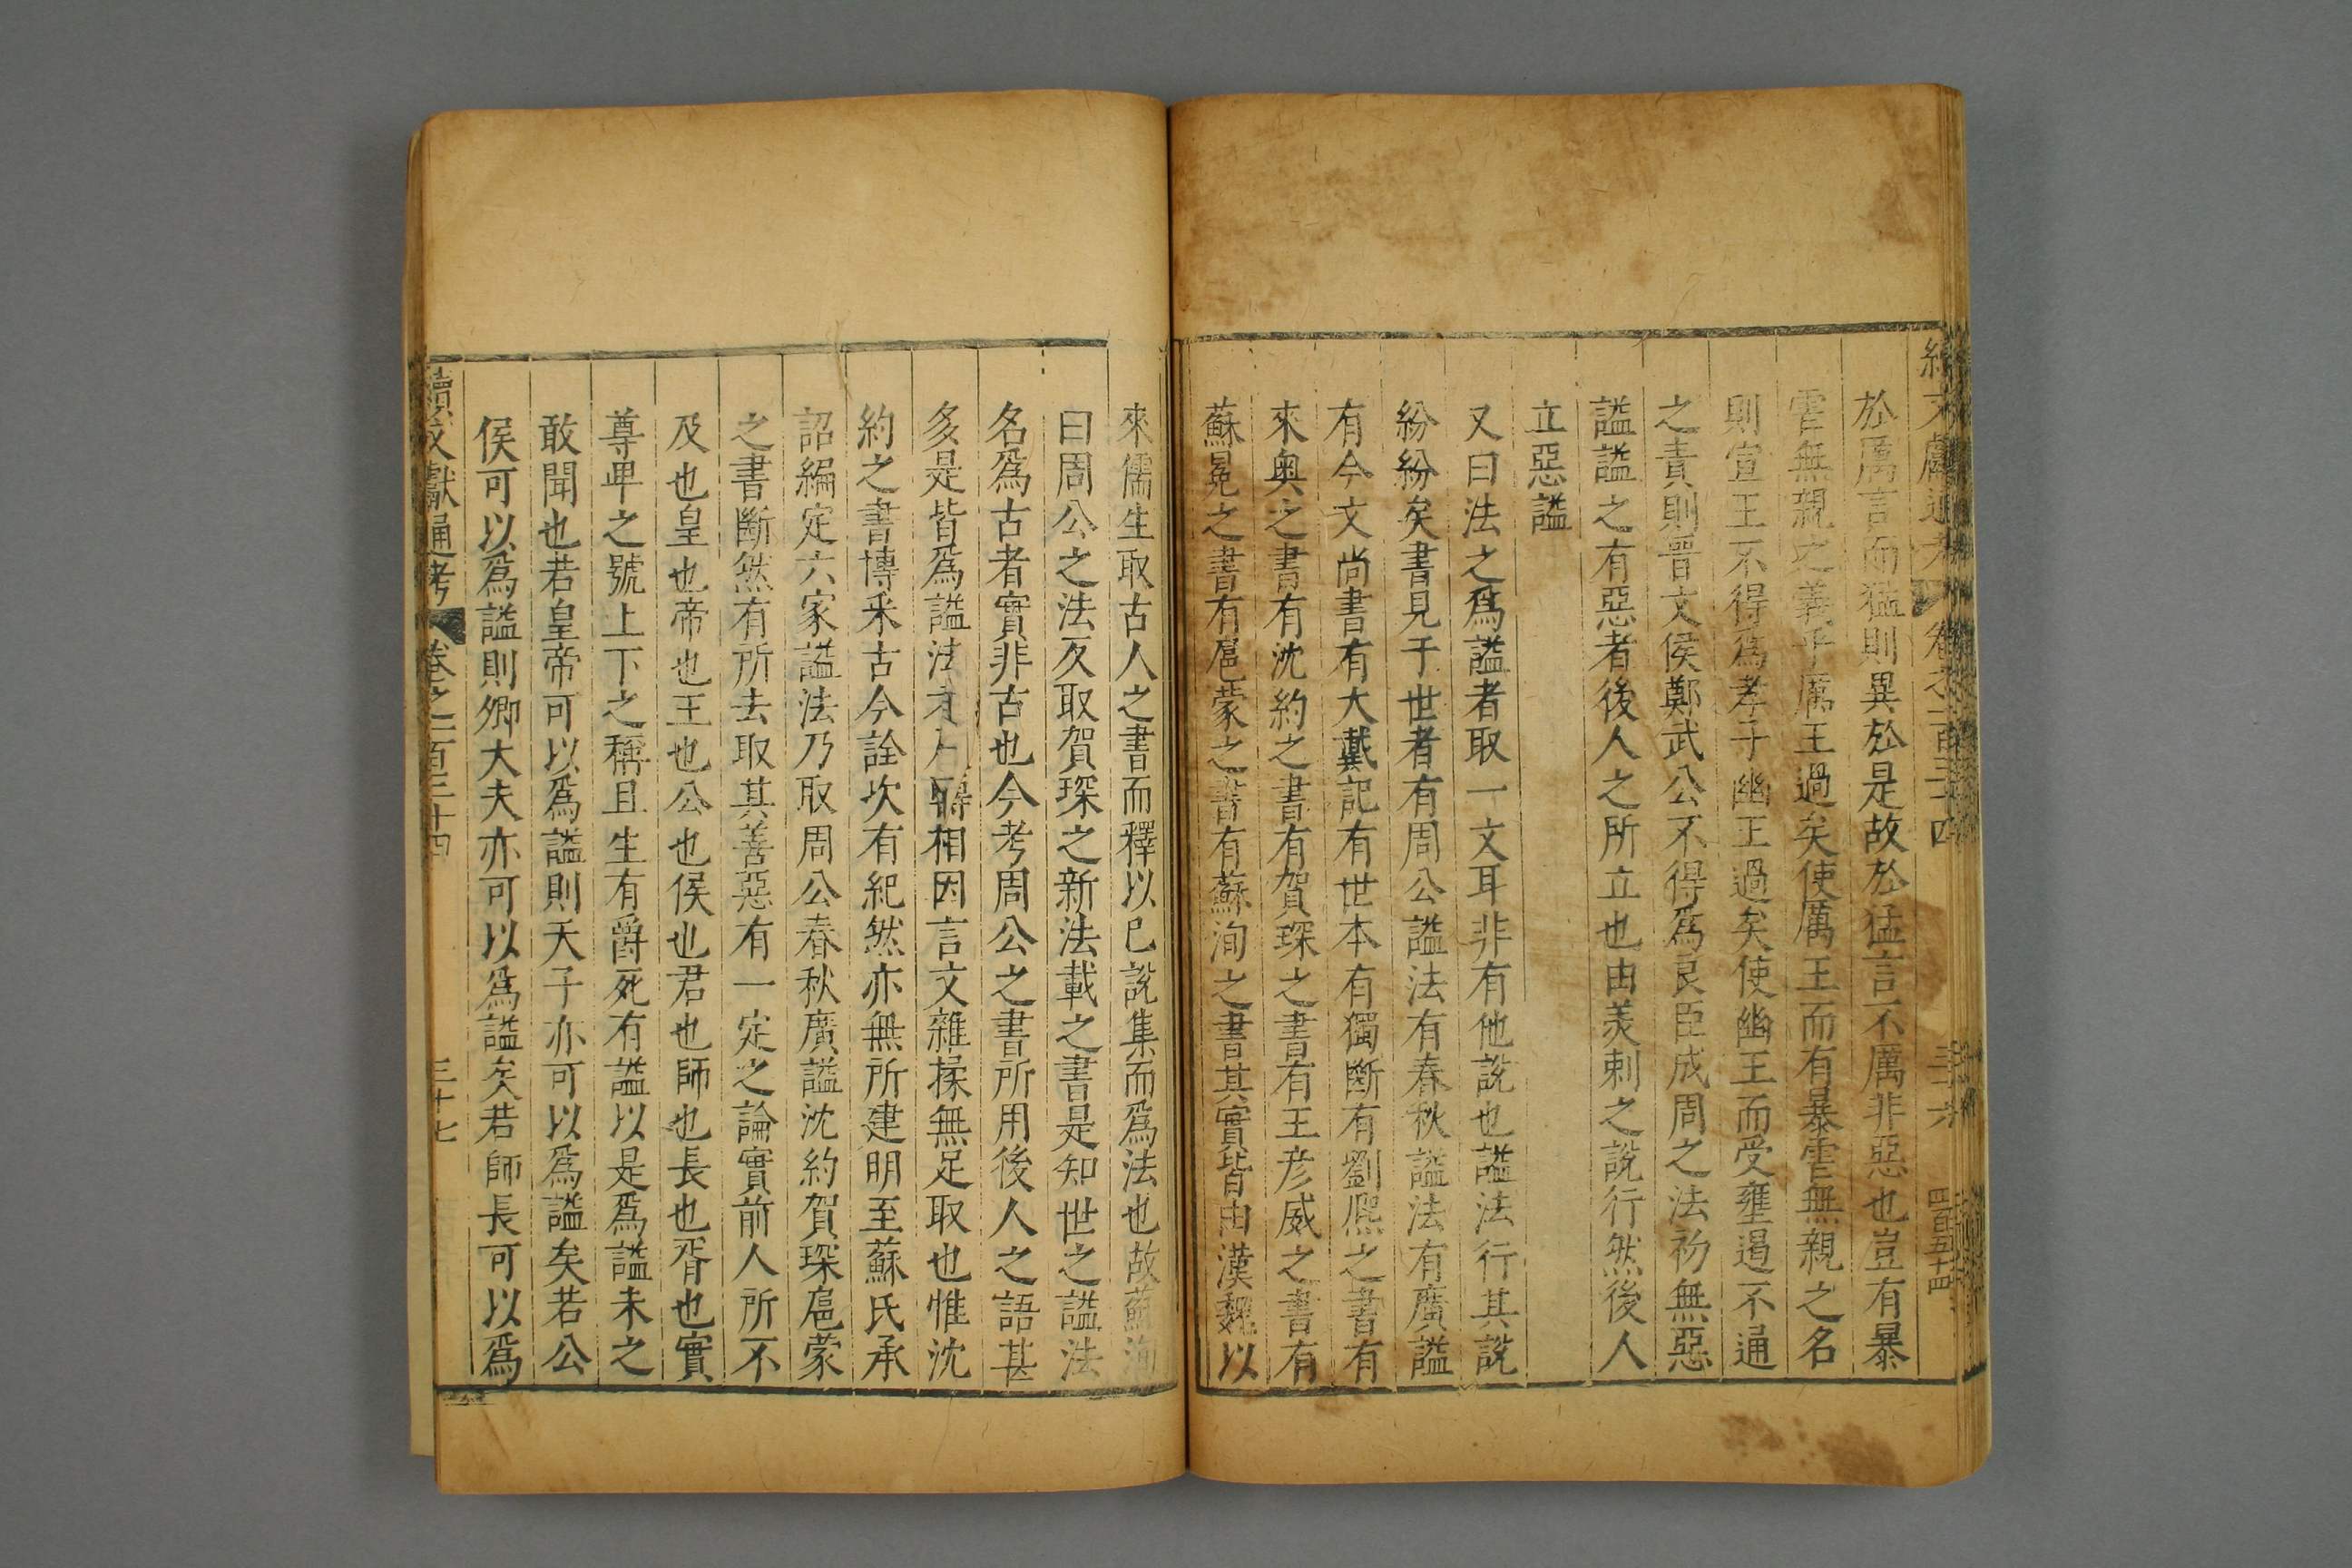 續文獻通考 卷之一百三十四 三十六 四百五十四
於厲言而猛則異於是故於猛言不厲非惡也豈有暴
虐無親之義乎厲王過矣使厲王而有暴虐無親之名
則宣王不得爲孝子幽王過矣使幽王而受壅遏不通
之責則晋文侯鄭武公不得爲良臣成周之法初無惡
謚謚之有惡者後人之所立也由美刺之說行然後人
立惡謚
又曰法之爲謚者取一文耳非有他說也謚法行其說
紛紛矣書見于世者有周公謚法有春秋謚法有廣謚
有今文尚書有大戴記有世本有獨斷有劉熈之書有
來奥之書有沈約之書有賀琛之書有王彦威之書有
蘇冕之書有扈蒙之書有蘇洵之書其實皆由漢魏以
來儒生取古人之書而釋以已說集而爲法也故蘇洵
曰周公之法反取賀琛之新法載之書是知世之謚法
名爲古者實非古也今考周公之書所用後人之語甚
多是皆爲謚法相因言文雜揉無足取也惟沈
約之書博釆古今詮次有紀然亦無所建明至蘇氏承
詔編定六家謚法乃取周公春秋廣謚沈約賀琛扈蒙
之書斷然有所去取其善惡有一定之論實前人所不
及也皇也帝也王也公也侯也君也師也長也胥也實
尊卑之號上下之稱且生有爵死有謚以是爲謚未之
敢聞也若皇帝可以爲謚則天子亦可以爲謚矣若公
侯可以爲謚則卿大夫亦可以爲謚矣若師長可以爲
續文獻通考 卷之一百三十四 三十七